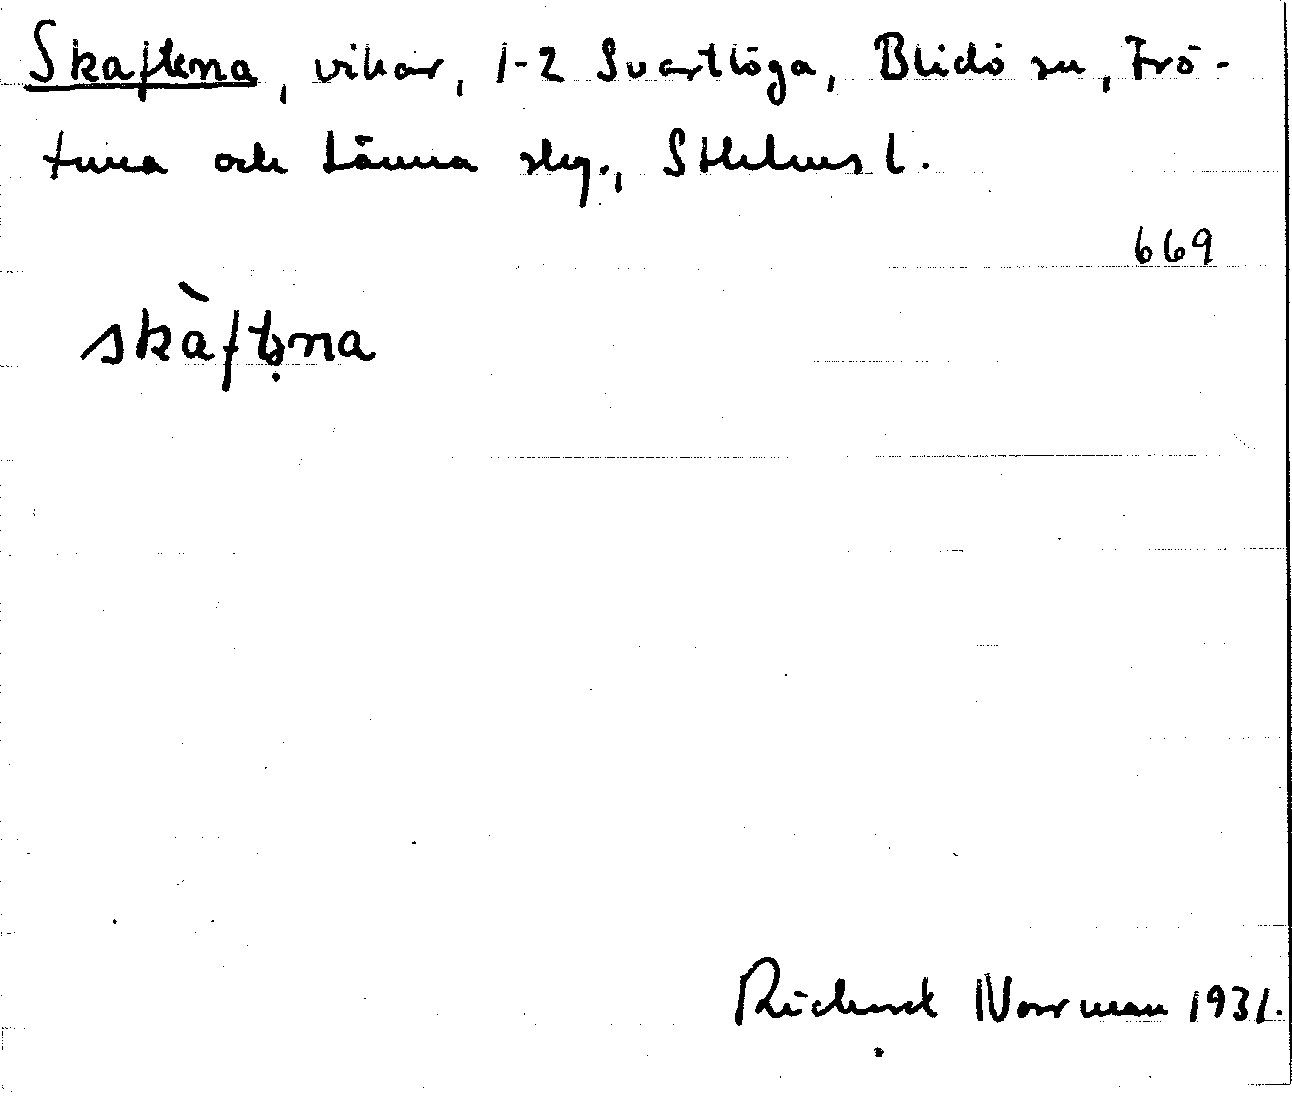 Skaftena, vikar, 1-2 Svartlöga, Blidö sn, Frö-
tuna och Länna slg., Sthlms l.
669
skàftəna
Richard Norrman 1931.